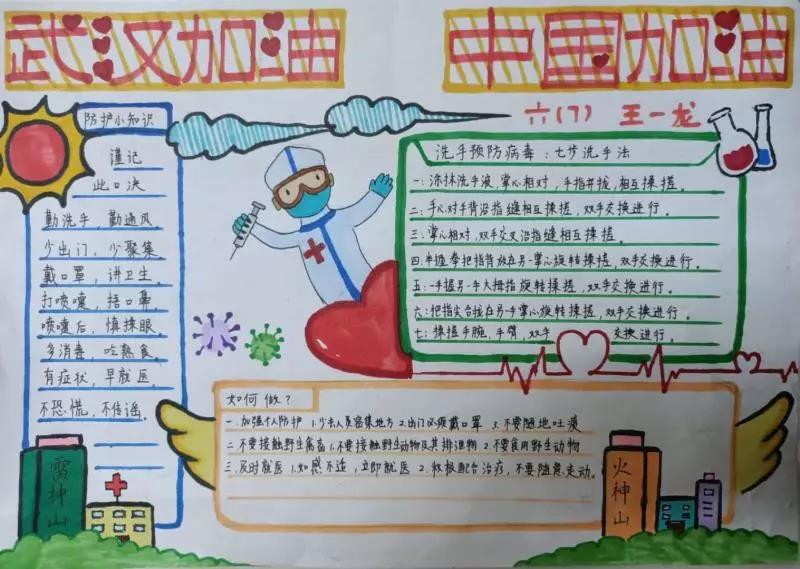 武汉加油
中国加油
六(7) 王一龙
防护小知识
谨记
此口决
勤洗手，勤通风
少出门，少聚集
戴口罩，讲卫生。
打喷嚏，捂口鼻
喷嚏后，慎揉眼。
多消毒，吃熟食。
有症状，早就医。
不恐慌，不传谣。
洗手预防病毒：七步洗手法
一：涂抹洗手液，掌心相对，手指并拢，相互揉搓。
二：手心对手背沿指缝相互揉搓，双手交换进行。
三：掌心相对，双手交叉沿指缝相互揉搓。
四：半握拳把指背放在另一掌心旋转揉搓，双手交换进行。
五：一手握另一手大拇指旋转揉搓，双手交换进行。
六：把指尖合拢在另一手掌心旋转揉搓，双手交换进行。
七：揉搓手腕，手臂，双手 交换进行。
如何做？
一.加强个人防护 1.少去人员密集地方 2.出门必须戴口罩 3.不要随地吐痰
二.不要接触野生禽畜 1.不要接触野生动物及其排泄物 2.不要食用野生动物
三.及时就医 1.如感不适，立即就医 2.积极配合治疗，不要随意走动。
雷神山
火神山